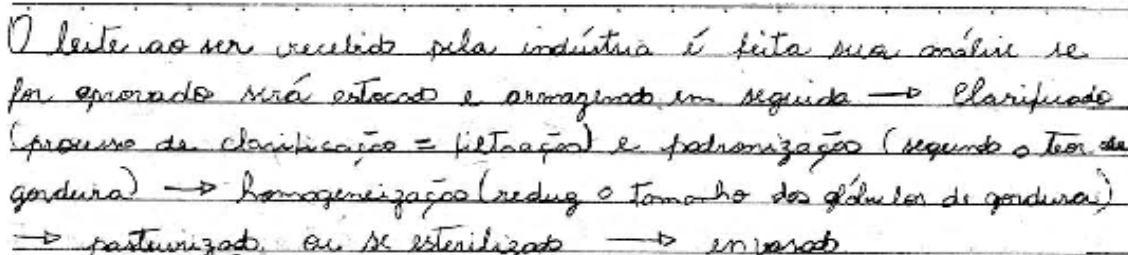 O leite ao ser recebido pela indústria é feita sua análise se
for aprovado será estocado e armazenado em seguida → Clarificado
(processo de clarificação = filtração) e padronização (segundo o teor de
gordura) → homogeneização (reduz o tamanho dos glóbulos de gordura)
→ pasteurizado ou se esterilizado → envasado